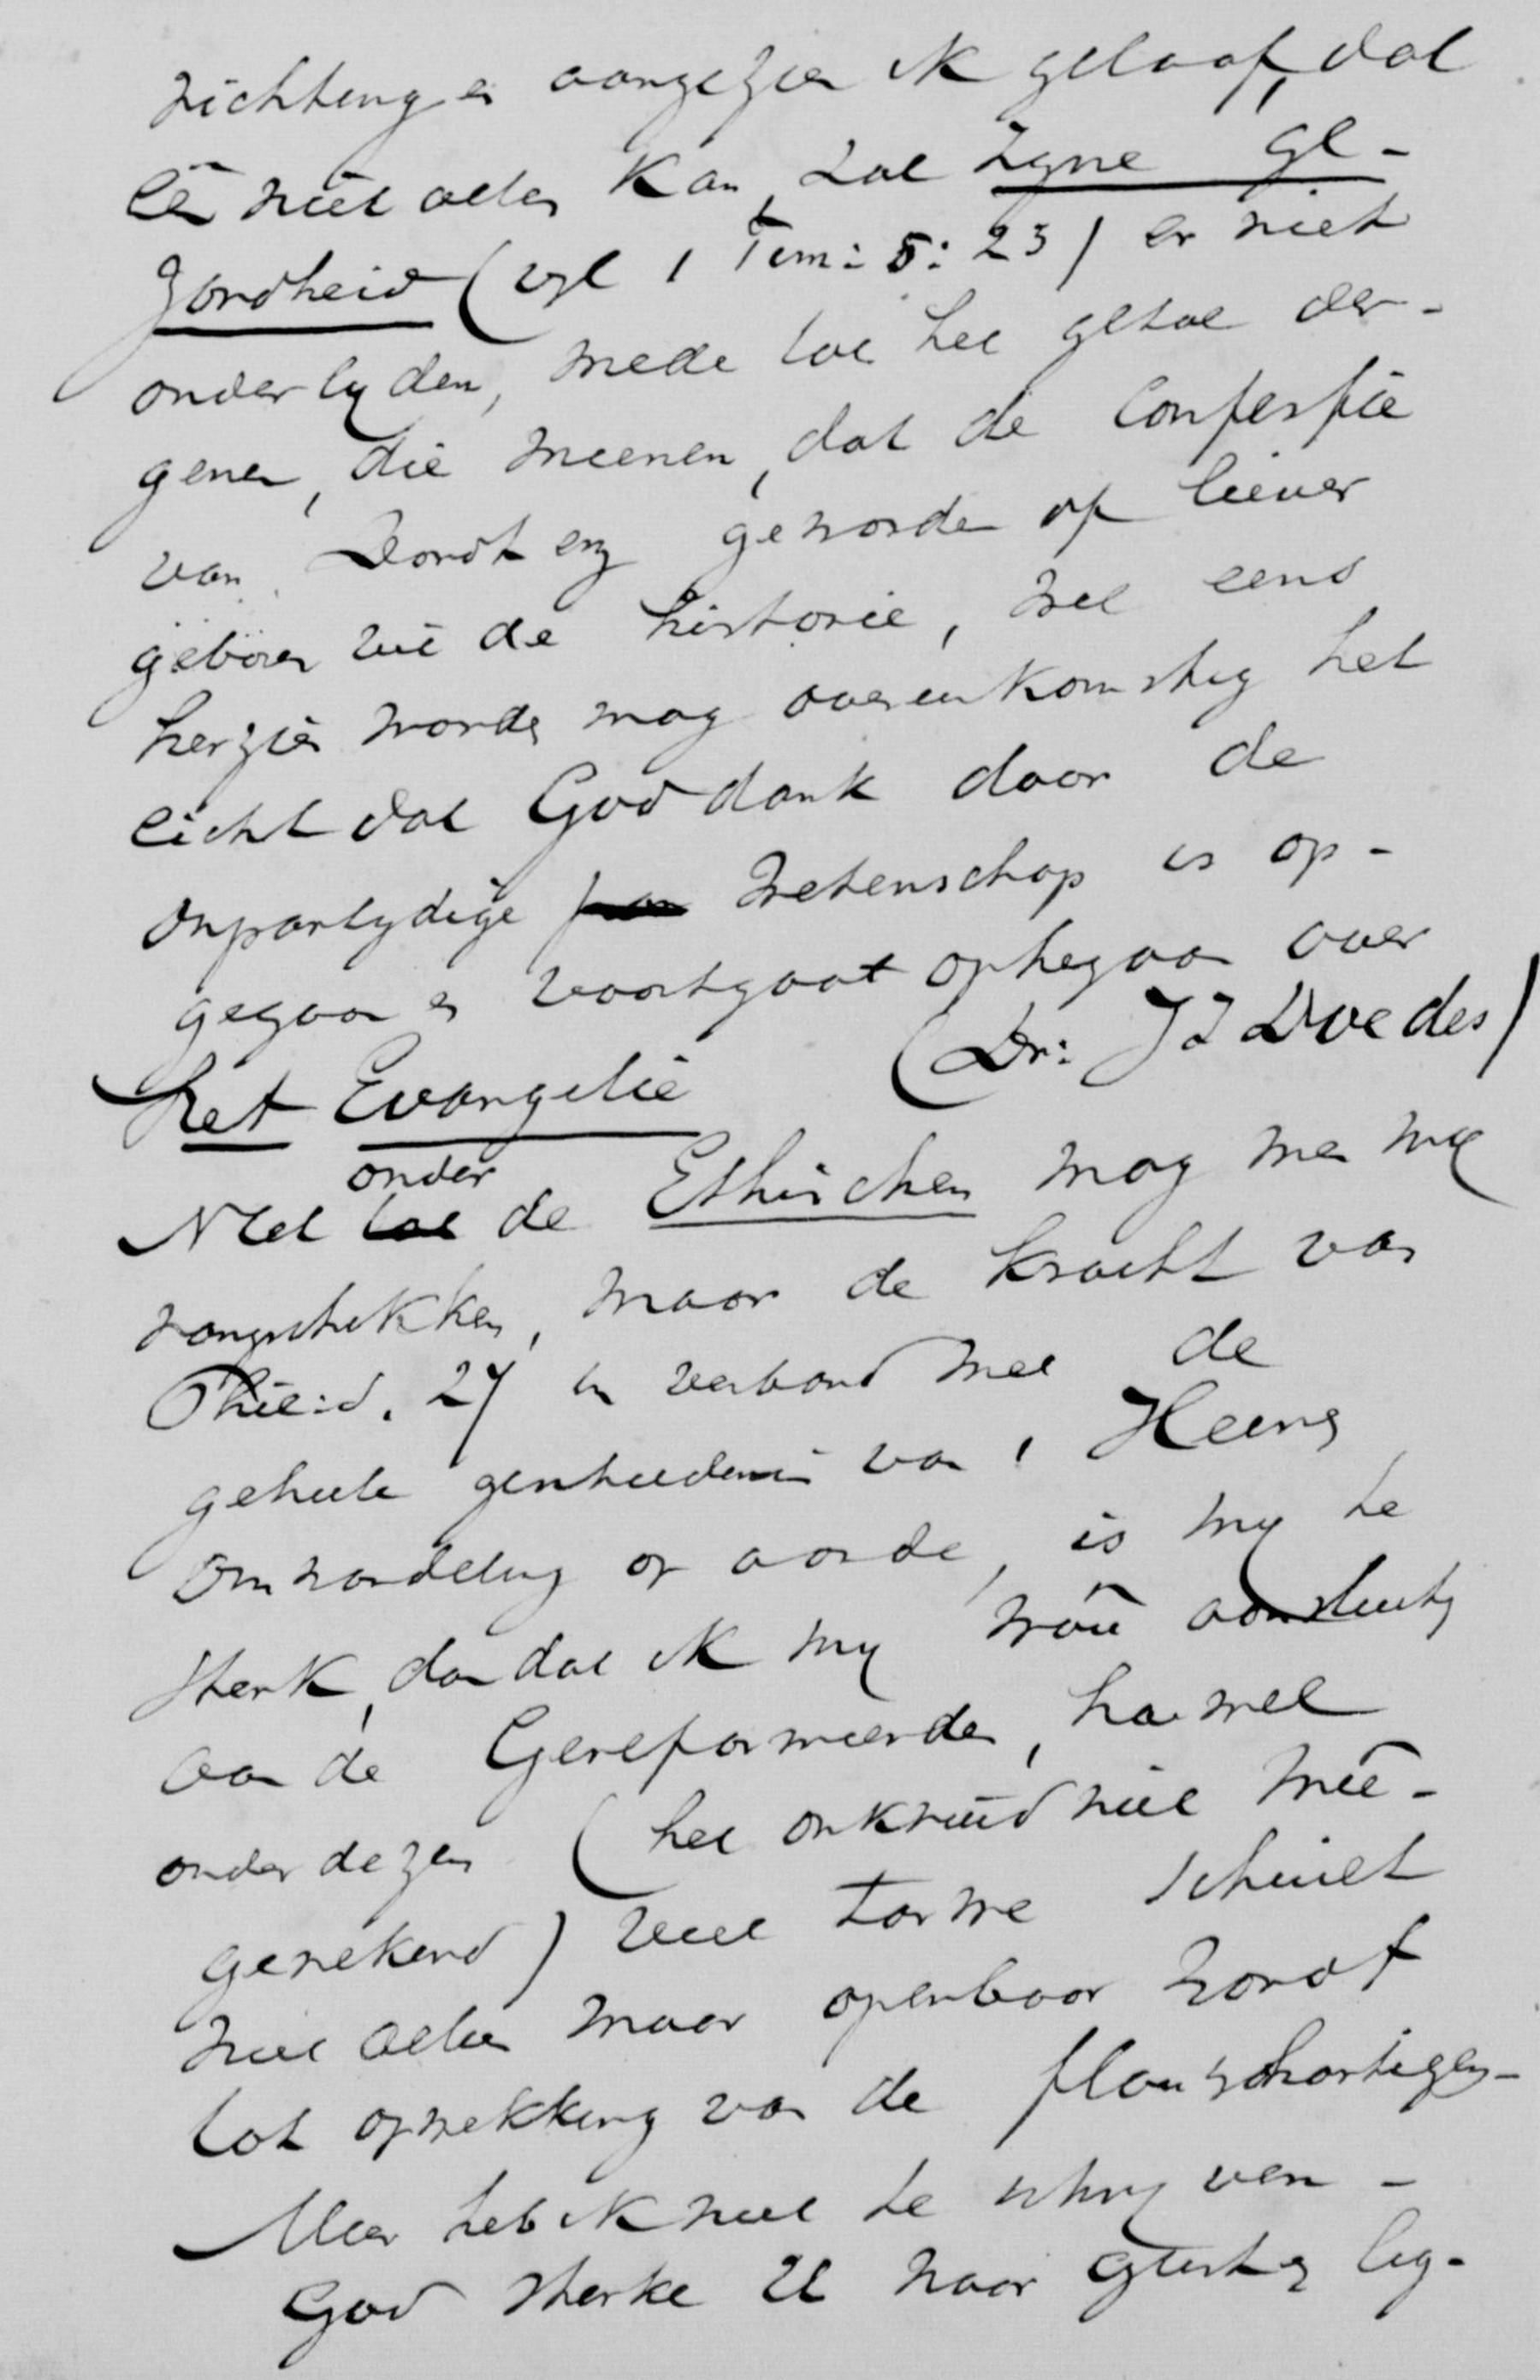 richting en aangezien ik geloof, dat
één niet alles kan, zal zijne ge-
zondheid (vgl 1 Tim: 5: 23) er niet
onder lijden, mede tot het getal der-
genen, die meenen, dat de Confessie
van Dordt enz geworden of liever
geboren uit de historie, wel eens
herzien worden mag overeenkomstig het
licht dat God dank door de
onpartijdige wetenschap is op-
gegaan en voortgaat op te gaan over
het Evangelie (Dr: J I Doedes)
Niet onder de Ethischen mag men mij
rangschikken, maar de kracht van
in verband met de
geheele geschiedenis van 's Heeren
omwandeling op aarde, is mij te
sterk, dan dat ik mij zou aansluiten
aan de Gereformeerden, hoewel
onder dezen (het onkruid niet meê-
gerekend) veel tarwe schuilt
niet alleen maar openbaar wordt
tot opwekking van de flauwhartigen -
Meer heb ik niet te schrijven -
God sterke U naar geest en lig-